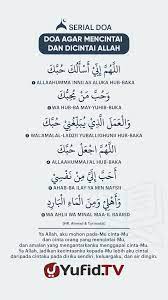 SERIAL DOA
DOA AGAR MENCINTAI
DAN DICINTAI ALLAH
اللَّهُمَّ إِنِّيْ أَسْأَلُكَ حُبَّكَ
ALLAAHUMMA INNII AS ALUKA HUB-BAKA
وَحُبَّ مَنْ يُحِبُّكَ
WA HUB-BA MAY-YUHIB-BUKA
وَالْعَمَلَ الَّذِيْ يُبَلِّغُنِيْ حُبَّكَ
WA'AMALAL-LADZII YUBALLIGHUNII HUB-BAKA
اللَّهُمَّ اجْعَلْ حُبَّكَ
ALLAAHUMMAJ'AL HUB-BAKA
أَحَبَّ إِلَيَّ مِنْ نَفْسِيْ
AHAB-BA ILAY-YA MIN NAFSII
وَأَهْلِيْ وَمِنَ الْمَاءِ الْبَارِدِ
WA AHLII WA MINAL MAA-IL BAARID
(HR. Ahmad & Turmudzi)
Ya Allah, aku mohon pada-Mu cinta-Mu
dan cinta orang yang mencintai-Mu,
dan amalan yang mengantarkanku menggapai cinta-Mu.
Ya Allah, jadikan kecintaanku kepada-Mu lebih aku cintai
daripada cintaku pada diriku sendiri, keluargaku, dan air dingin.
YUFID.TV